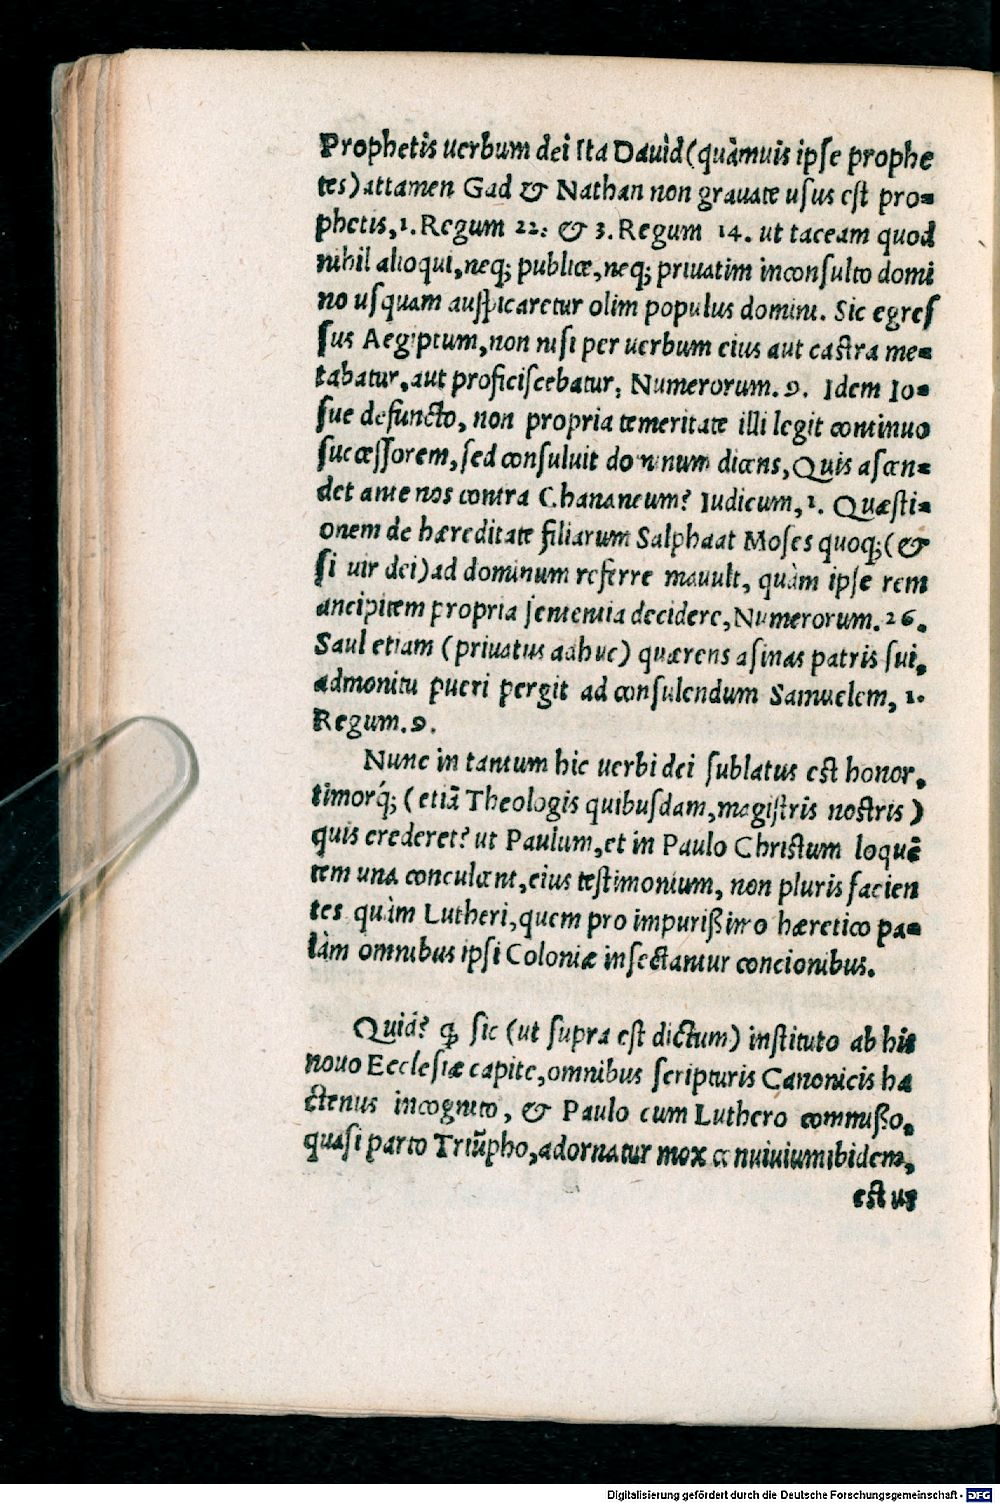 Prophetis uerbum dei Ita Dauìd (quàmuis ipſe prophe
tes) attamen Gad & Nathan non grauate uſus eſt pro=
phetis, 1. Regum 22. & 3. Regum 14. ut taceam quod
nihil alioqui, neq; publicæ, neq; priuatim inconſulto domi
no uſquam auſpicaretur olim populus domini. Sic egreſ
ſus Aegiptum, non niſi per uerbum eius aut caſtra me=
tabatur, aut proficiſcebatur, Numerorum. 9. Idem Io=
ſue defuncto, non propria temeritate illi legit continuo
ſucceſſorem, ſed conſuluit dominum dicens, Quis aſcen=
det ante nos contra Chananeum? Iudicum, 1. Quæſti=
onem de hæreditate filiarum Salphaat Moſes quoq; (&
ſi uir dei) ad dominum referre mauult, quàm ipſe rem
ancipitem propria ſententia decidere, Numerorum. 26.
Saul etiam (priuatus adhuc) quærens aſinas patris ſui,
admonitu pueri pergit ad conſulendum Samuelem, 1.
Regum. 9.
Nunc in tantum hic uerbi dei ſublatus eſt honor,
timorq́; (etiã Theologis quibuſdam, magiſtris noſtris)
quis crederet? ut Paulum, et in Paulo Chriſtum loquẽ
tem una conculcent, eius teſtimonium, non pluris facien
tes quàm Lutheri, quem pro impurißimo hæretico pa=
làm omnibus ipſi Coloniæ inſectantur concionibus.
Quid? ꝙ ſic (ut ſupra eſt dictum) inſtituto ab his
nouo Eccleſiæ capite, omnibus ſcripturis Canonicis ha
ctenus incognito, & Paulo cum Luthero commißo,
quaſi parto Triũpho, adornatur mox conuiuium ibidem,
eſt us
Digitalisierung gefördert durch die Deutsche Forschungsgemeinschaft - DFG